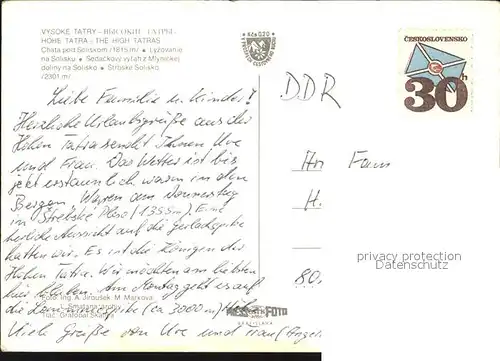 VYSOKÉ TATRY – ВЫСОКИЕ ТАТРЫ –
HOHE TATRA – THE HIGH TATRAS
Chata pod Soliskom /1815 m/ • Lyžovanie
na Solisku • Sedačkový výťah z Mlynickej
doliny na Solisko • Štrbské Solisko
/2301 m/
Kčs 0,20
ČESKOSLOVENSKO
30h
DDR
Liebe Familie u. Kinder!
Herzliche Urlaubsgrüße aus der
Hohen Tatra sendet Ihnen Uwe
und Frau. Das Wetter ist bis
jetzt erstaunlich warm in den
Bergen. Waren am Donnerstag
in Štrbské Pleso (1355m). Eine
herrliche Aussicht auf die Gerlachspitze
hatten wir. Es ist die Königin der
Hohen Tatra. Wir möchten am liebsten
hier bleiben. Am Montag geht es auf
die Lomnitzspitze (ca 3000m)
Viele Grüße von Uwe und Frau
An Fam
H.
80
Foto: Ing. A. Jiroušek, M. Marková
Tlač: Grafobal Skalica
FOTO
BRATISLAVA
privacy protection
Datenschutz